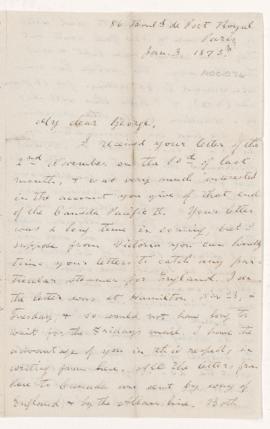 86 Boul.d de Port Royal
Paris
Jan. 3, 1873.
My dear George,
I received your letter of the
2nd November on the of last
month, & was very much interested
in the account you give of that end
of the Canada Pacific Ry. Your letter
was a long time in coming, but I
suppose from Victoria you can hardly
time your letters to catch any par-
ticular steamer for England. I see
the letter was at Hamilton, Nov 23, a
Tuesday & so would not have long to
wait for the Fridays mail. I have the
advantage of you in this respect, in
writing from here. All the letters from
here to Canada are sent by way of
England & by the Allan line. Both